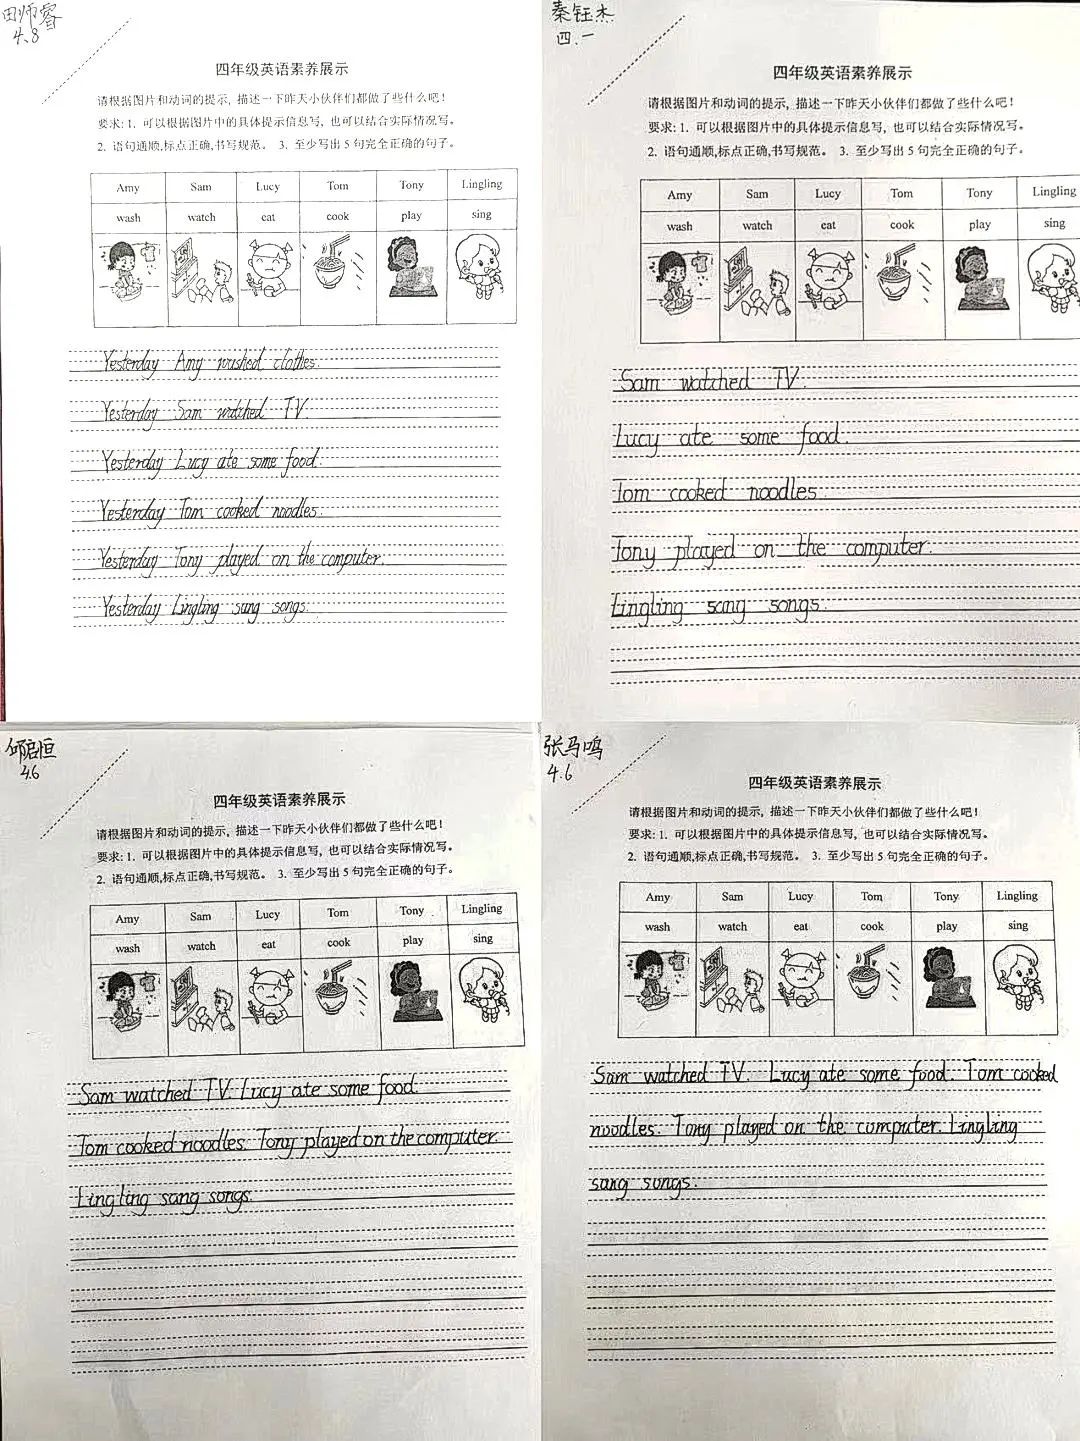 田师睿
4.8
四年级英语素养展示
请根据图片和动词的提示,描述一下昨天小伙伴们都做了些什么吧!
要求:1. 可以根据图片中的具体提示信息写,也可以结合实际情况写。
2. 语句通顺,标点正确,书写规范。 3. 至少写出5句完全正确的句子。
Amy Sam Lucy Tom Tony Lingling
wash watch eat cook play sing
Yesterday Amy washed clothes.
Yesterday Sam watched TV.
Yesterday Lucy ate some food.
Yesterday Tom cooked noodles.
Yesterday Tony played on the computer.
Yesterday Lingling sang songs.
秦钰杰
四.一
四年级英语素养展示
请根据图片和动词的提示,描述一下昨天小伙伴们都做了些什么吧!
要求:1. 可以根据图片中的具体提示信息写,也可以结合实际情况写。
2. 语句通顺,标点正确,书写规范。 3. 至少写出5句完全正确的句子。
Amy Sam Lucy Tom Tony Lingling
wash watch eat cook play sing
Sam watched TV.
Lucy ate some food.
Tom cooked noodles.
Tony played on the computer.
Lingling sang songs.
邱启恒
4.6
四年级英语素养展示
请根据图片和动词的提示,描述一下昨天小伙伴们都做了些什么吧!
要求:1. 可以根据图片中的具体提示信息写,也可以结合实际情况写。
2. 语句通顺,标点正确,书写规范。 3. 至少写出5句完全正确的句子。
Amy Sam Lucy Tom Tony Lingling
wash watch eat cook play sing
Sam watched TV. Lucy ate some food.
Tom cooked noodles. Tony played on the computer.
Lingling sang songs.
张马鸣
4.6
四年级英语素养展示
请根据图片和动词的提示,描述一下昨天小伙伴们都做了些什么吧!
要求:1. 可以根据图片中的具体提示信息写,也可以结合实际情况写。
2. 语句通顺,标点正确,书写规范。 3. 至少写出5句完全正确的句子。
Amy Sam Lucy Tom Tony Lingling
wash watch eat cook play sing
Sam watched TV. Lucy ate some food. Tom cooked
noodles. Tony played on the computer. Lingling
sang songs.